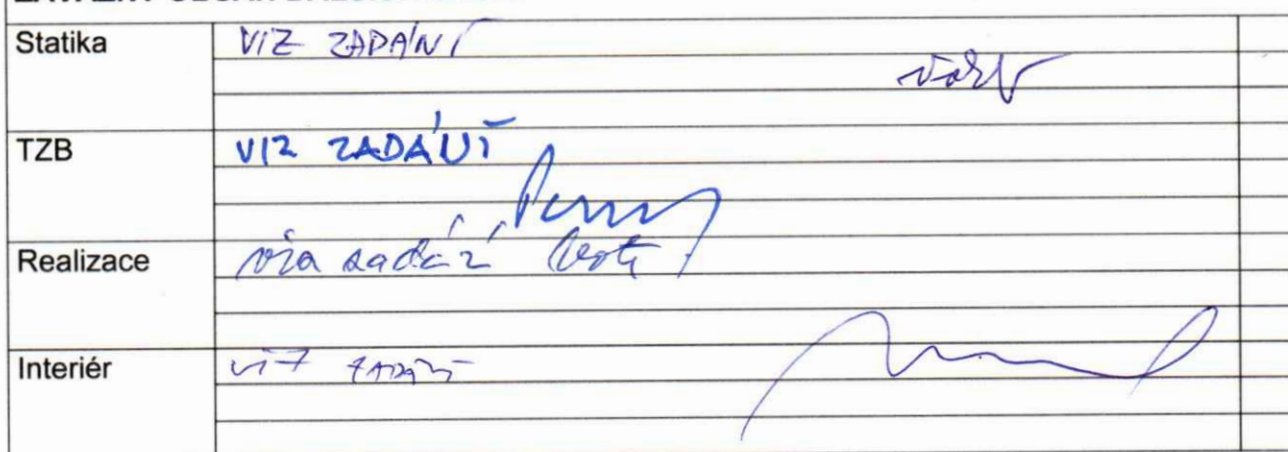 Statika VIZ ZADÁNÍ
TZB VIZ ZADÁNÍ
Realizace viz zadání
Interiér VIZ ZADÁNÍ